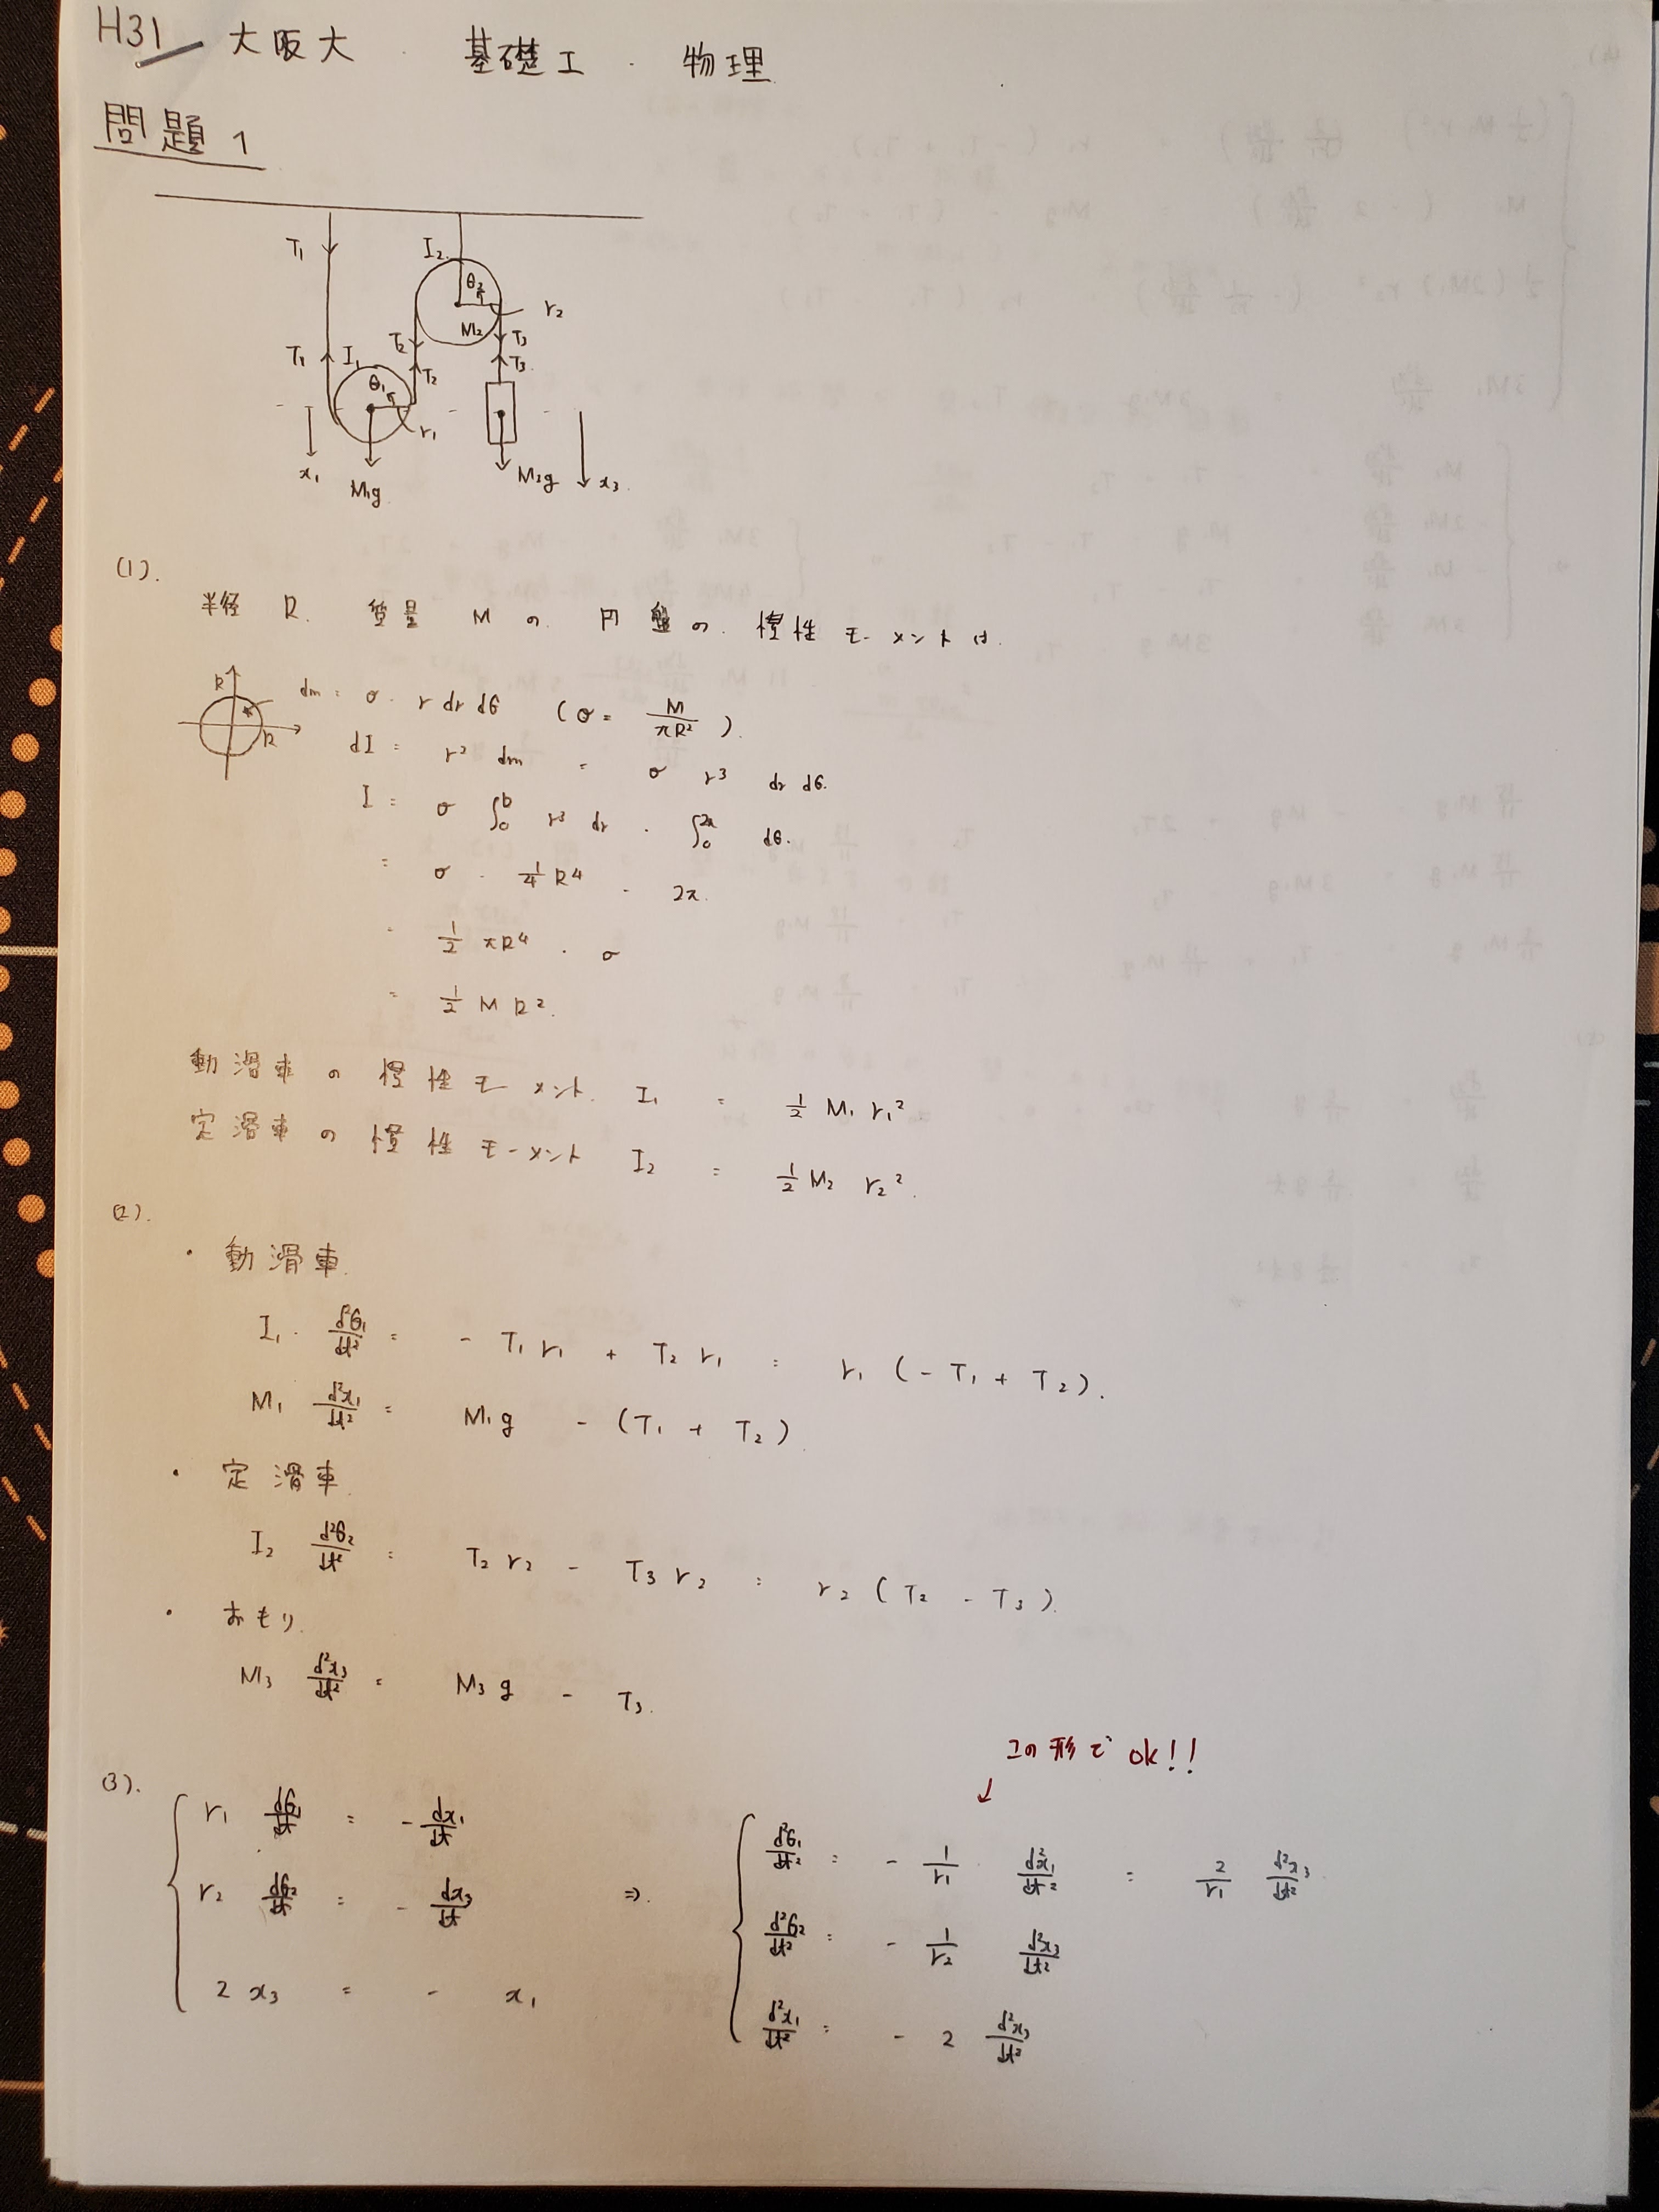 H31 大阪大 . 基礎工 . 物理
問題 1
T₁ I₂
θ₂ r₂
M₂
T₂ T₃
T₁ I₁ T₃
T₂
θ₁
r₁
x₁ M₁g M₃g x₃
(1).
半径 R. 質量 M の. 円盤の. 慣性モーメントは.
R dm = σ. r dr dθ (σ = M/πR²).
R
dI = r² dm = σ r³ dr dθ.
I = σ ∫₀ᵇ r³ dr . ∫₀²π dθ.
= σ . 1/4 R⁴ . 2π.
= 1/2 πR⁴ . σ
= 1/2 M R².
動滑車の慣性モーメント. I₁ = 1/2 M₁ r₁²
定滑車の慣性モーメント I₂ = 1/2 M₂ r₂².
(2).
・ 動滑車.
I₁ . d²θ₁/dt² = - T₁ r₁ + T₂ r₁ = r₁ (- T₁ + T₂).
M₁ d²x₁/dt² = M₁g - (T₁ + T₂).
・ 定滑車.
I₂ d²θ₂/dt² = T₂ r₂ - T₃ r₂ = r₂ (T₂ - T₃).
・ おもり.
M₃ d²x₃/dt² = M₃g - T₃.
この形で ok!!
↓
(3).
r₁ dθ₁/dt = - dx₁/dt
r₂ dθ₂/dt = - dx₃/dt ⇒.
2 x₃ = - x₁
d²θ₁/dt² = - 1/r₁ d²x₁/dt² = 2/r₁ d²x₃/dt².
d²θ₂/dt² = - 1/r₂ d²x₃/dt²
d²x₁/dt² = - 2 d²x₃/dt²